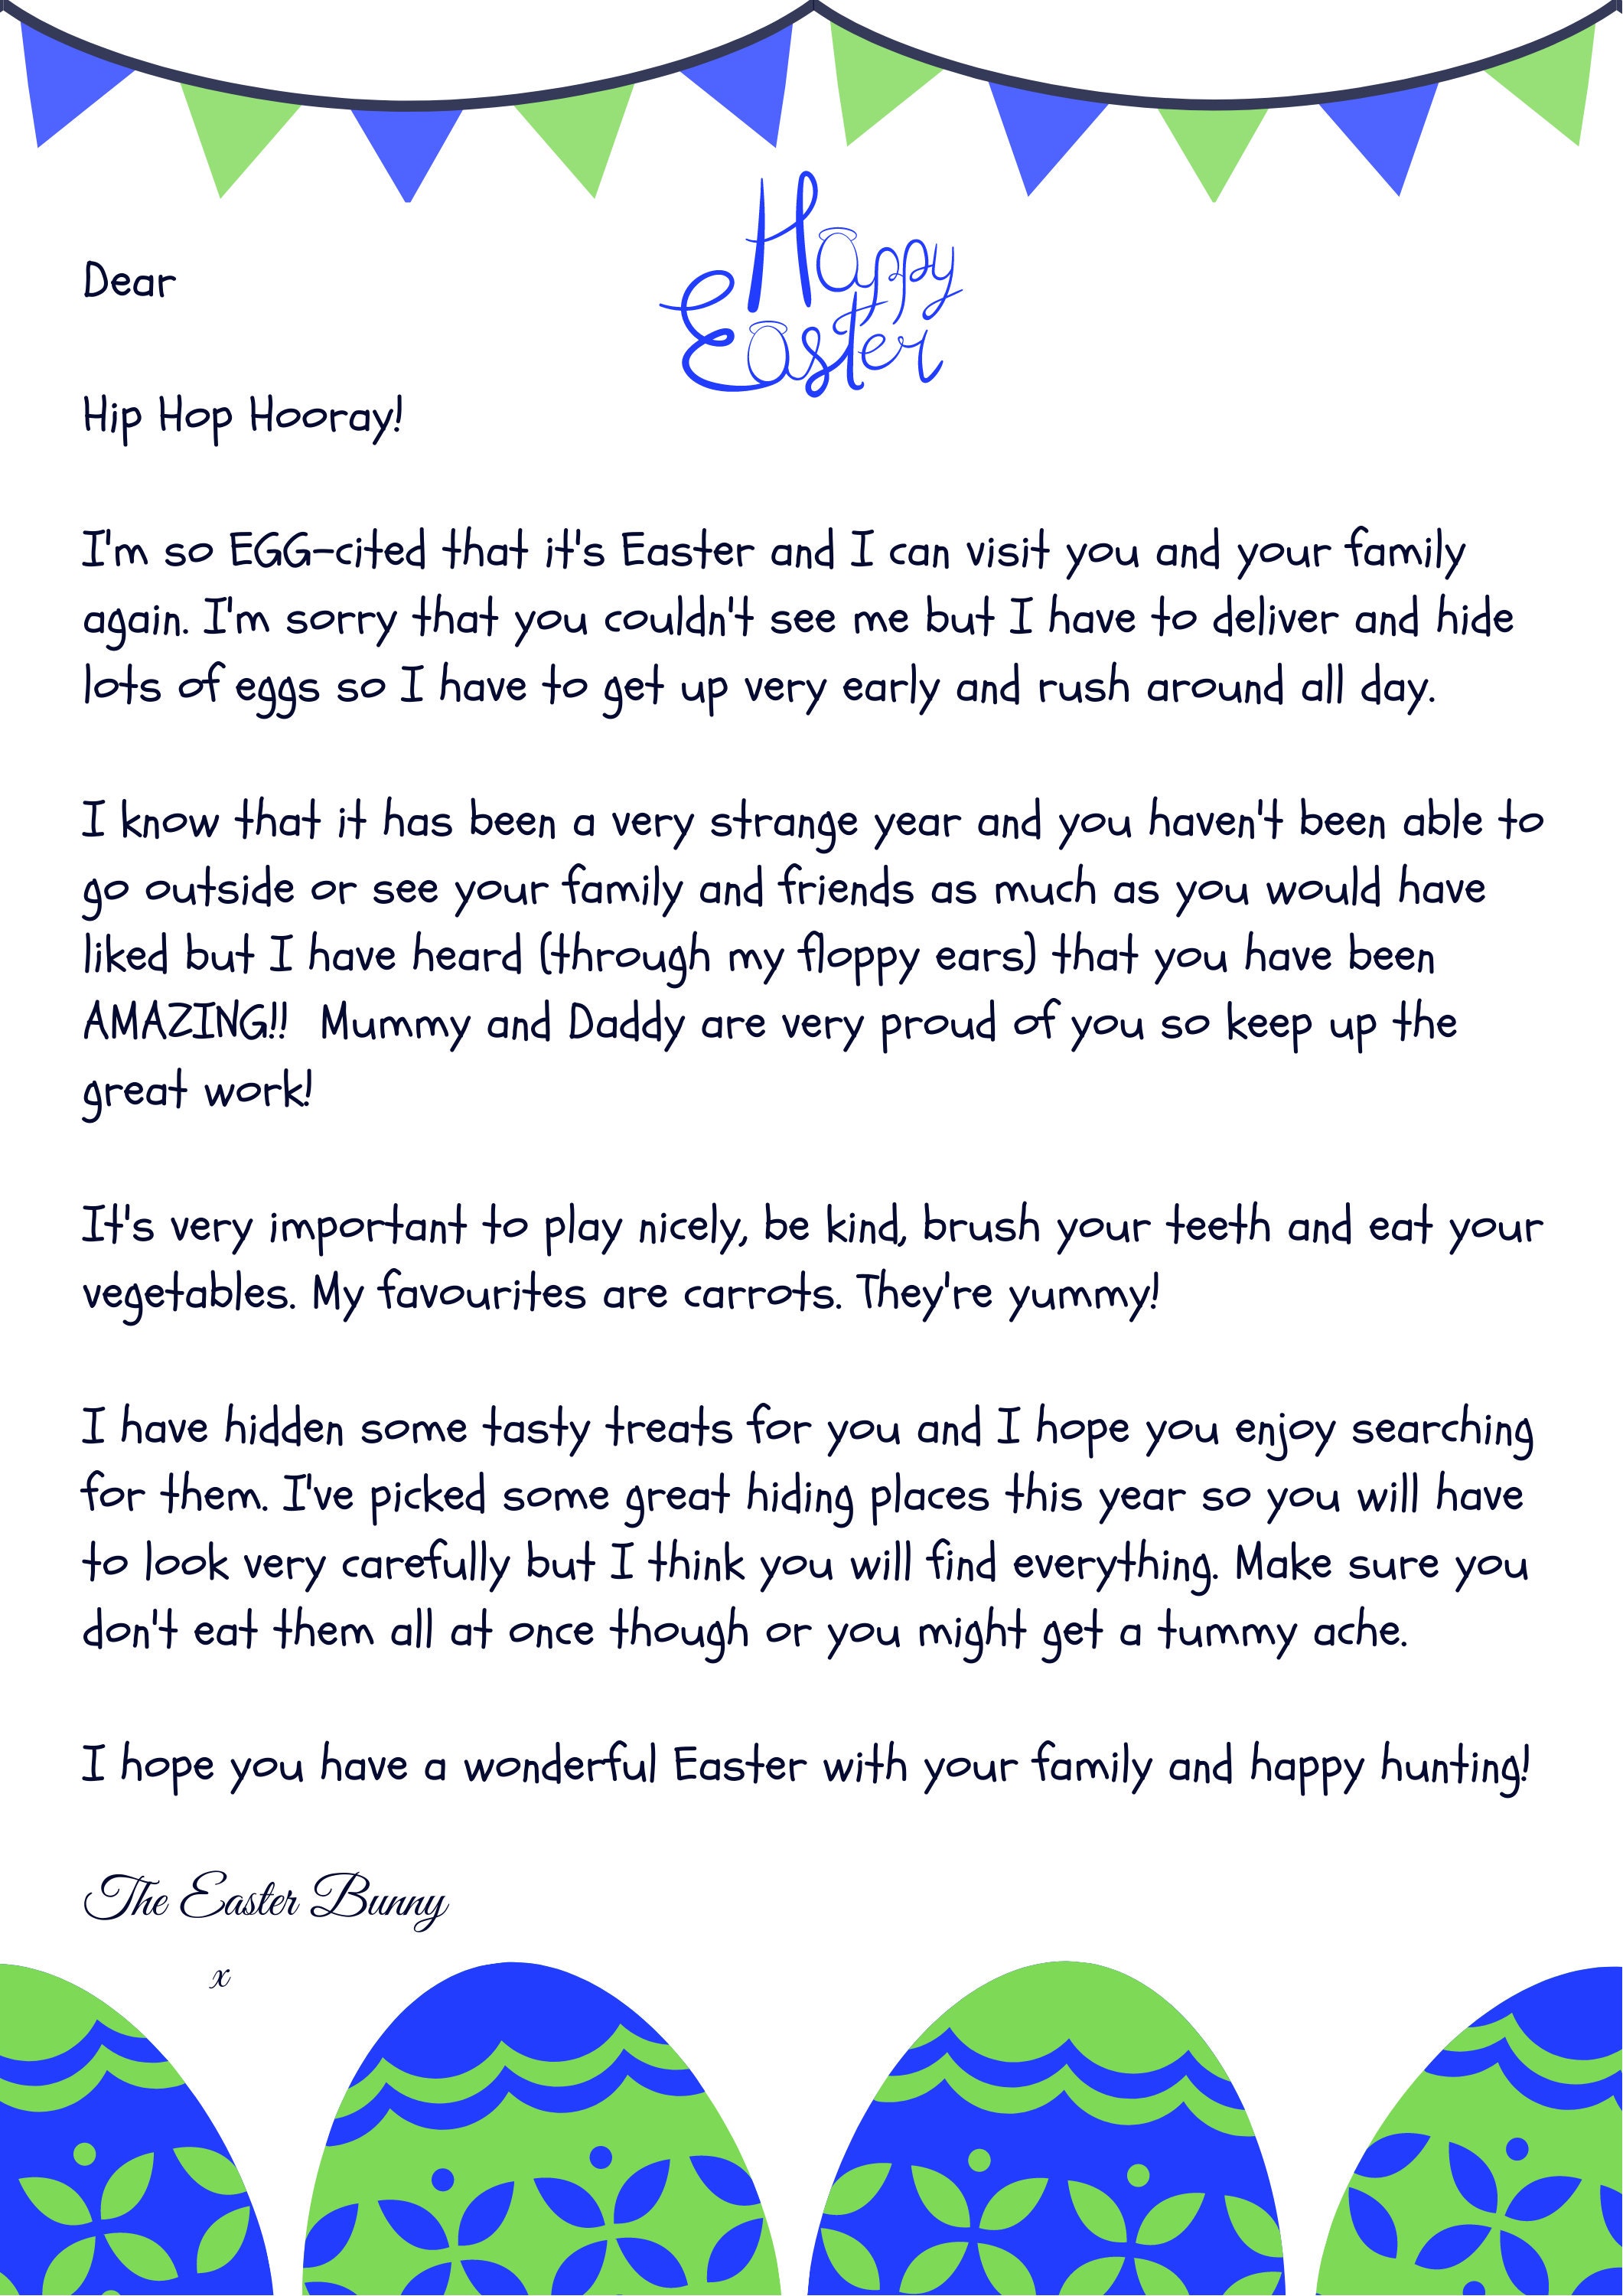 Happy
Easter
Dear
Hip Hop Hooray!
I'm so EGG-cited that it's Easter and I can visit you and your family
again. I'm sorry that you couldn't see me but I have to deliver and hide
lots of eggs so I have to get up very early and rush around all day.
I know that it has been a very strange year and you haven't been able to
go outside or see your family and friends as much as you would have
liked but I have heard (through my floppy ears) that you have been
AMAZING!! Mummy and Daddy are very proud of you so keep up the
great work!
It's very important to play nicely, be kind, brush your teeth and eat your
vegetables. My favourites are carrots. They're yummy!
I have hidden some tasty treats for you and I hope you enjoy searching
for them. I've picked some great hiding places this year so you will have
to look very carefully but I think you will find everything. Make sure you
don't eat them all at once though or you might get a tummy ache.
I hope you have a wonderful Easter with your family and happy hunting!
The Easter Bunny
x